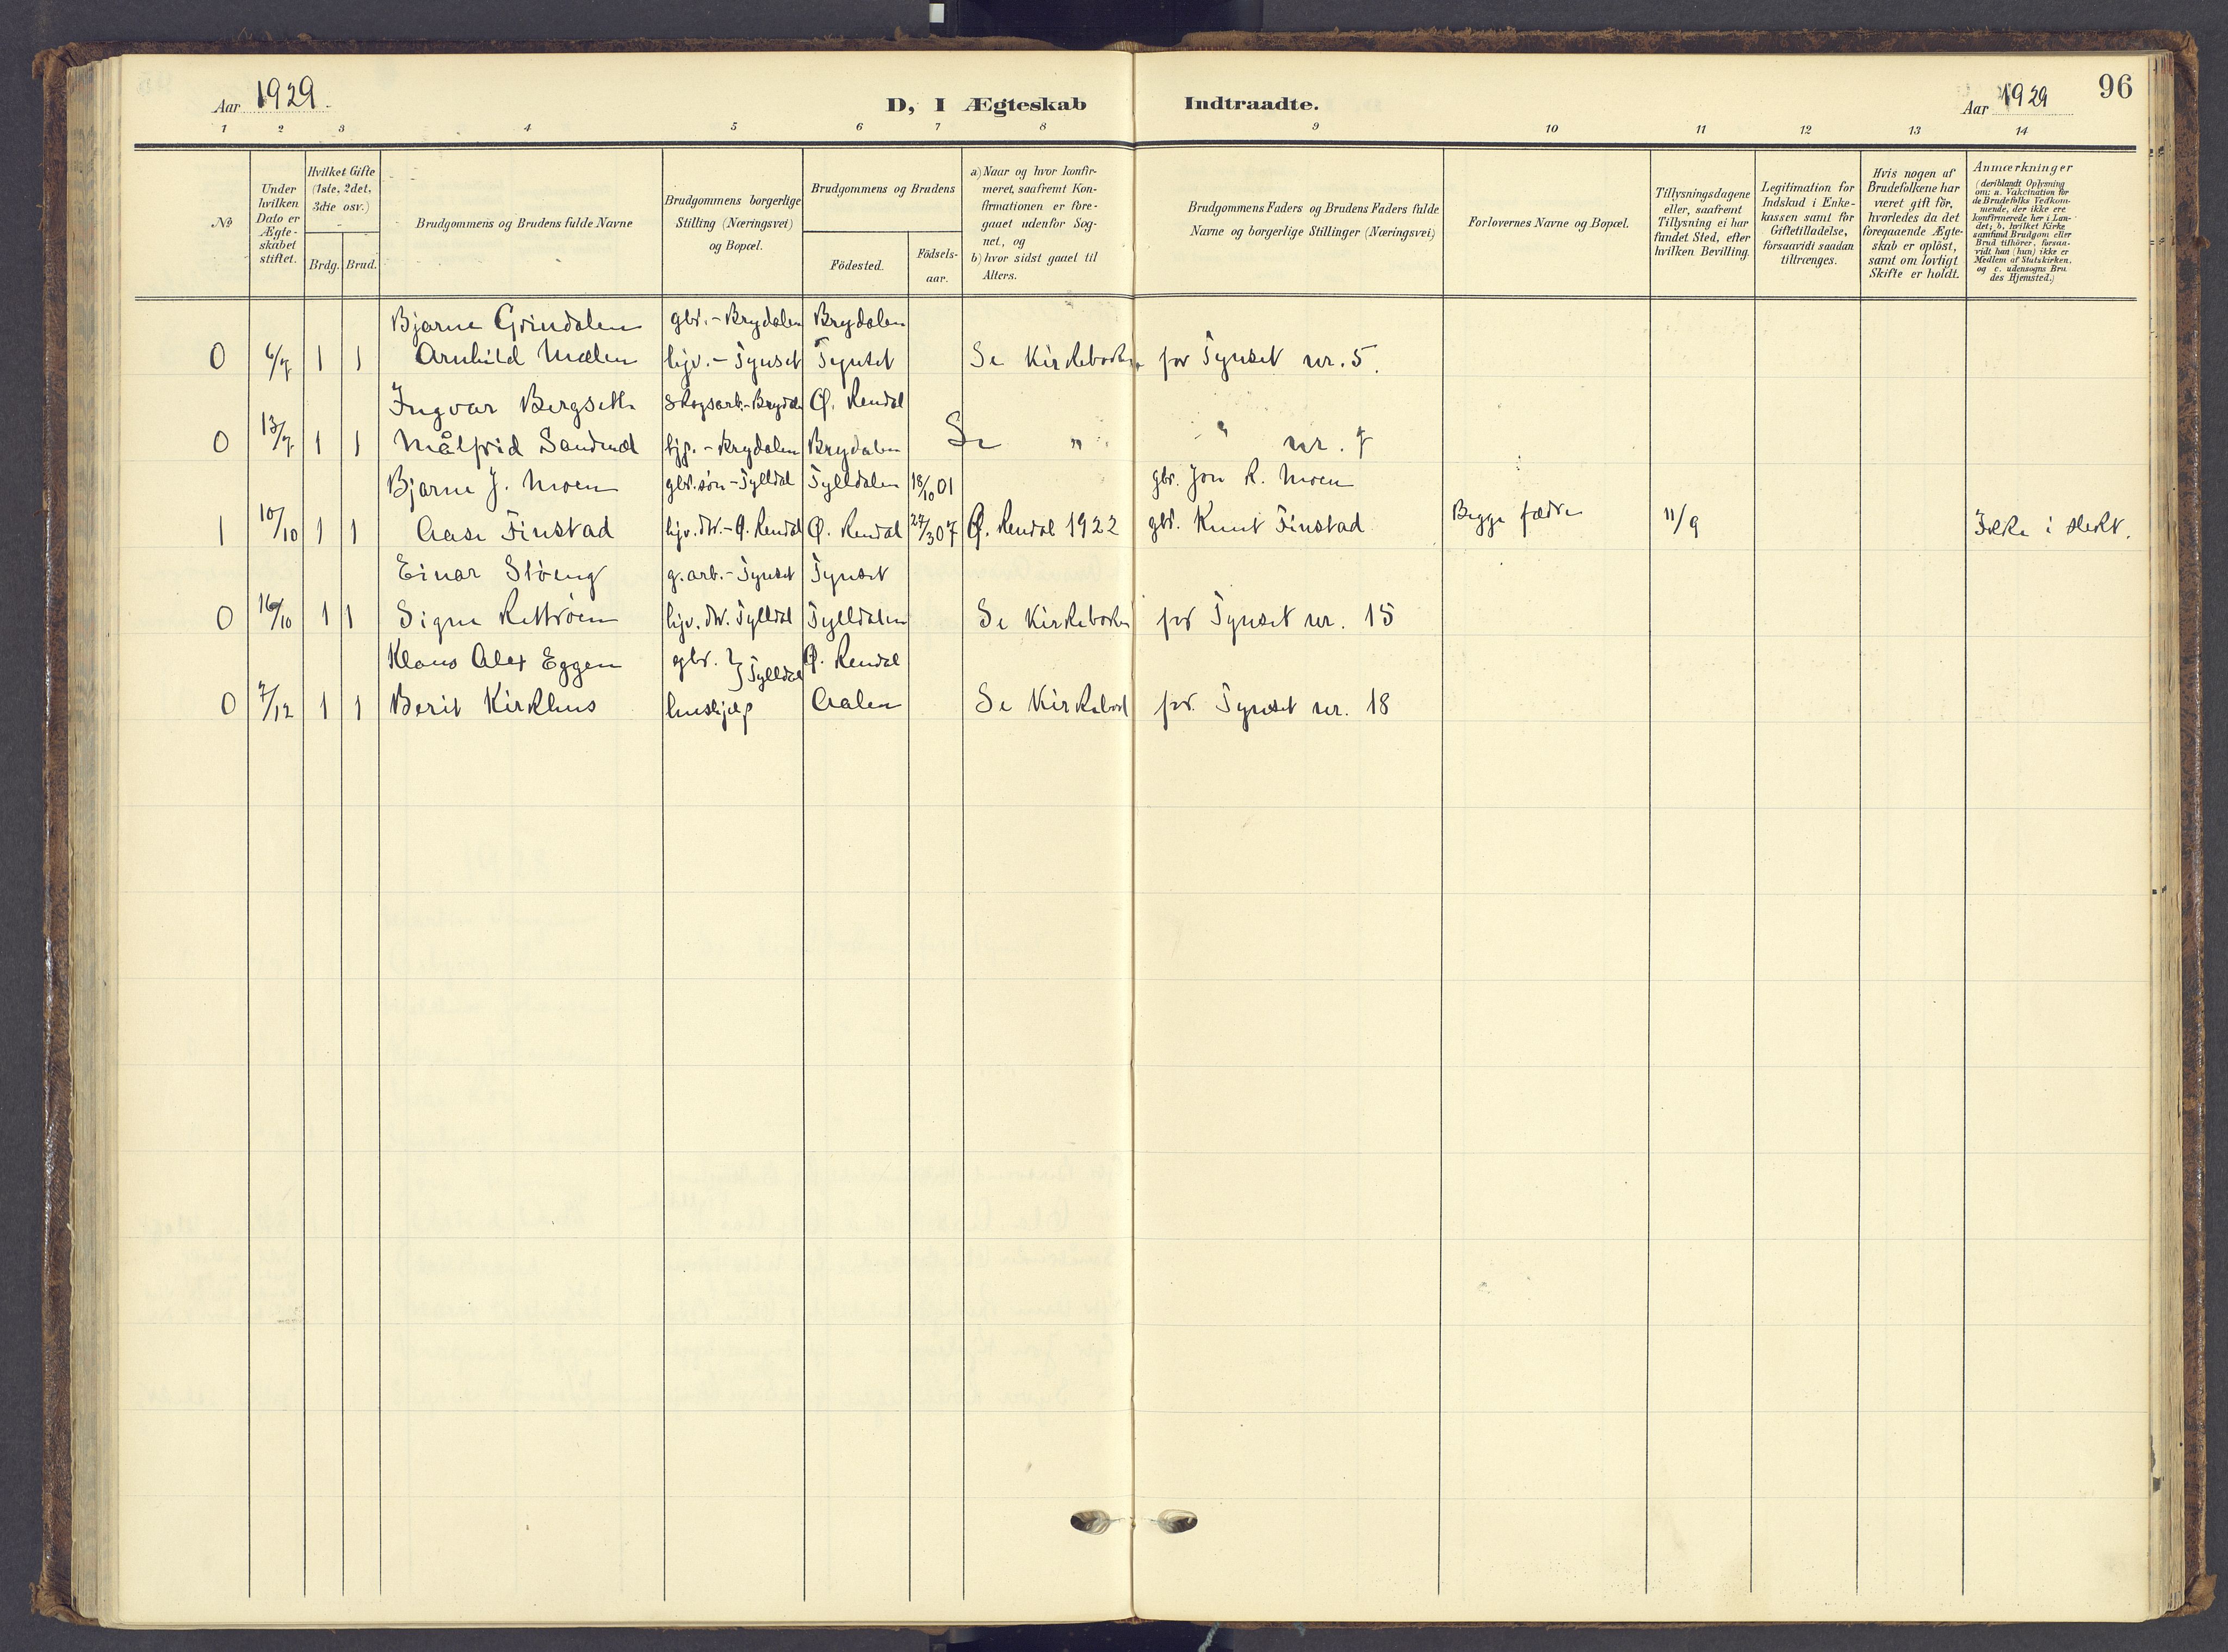 Aar 1929.
D, I Ægteskab Indtraadte.
Aar 1929
96
1 2 3 4 5 6 7 8 9 10 11 12 13 14
No
Under hvilken Dato er Ægte-skabet stiftet.
Hvilket Gifte (1ste, 2det, 3die osv.)
Brdg. Brud.
Brudgommens og Brudens fulde Navne
Brudgommens borgerlige Stilling (Næringsvei) og Bopæl.
Brudgommens og Brudens
Födested.
Födsels-aar.
a) Naar og hvor konfir-meret, saafremt Kon-firmationen er fore-gaaet udenfor Sog-net, og
b) hvor sidst gaaet til Alters.
Brudgommens Faders og Brudens Faders fulde Navne og borgerlige Stillinger (Næringsvei)
Forlovernes Navne og Bopæl.
Tillysningsdagene eller, saafremt Tillysning ei har fundet Sted, efter hvilken Bevilling.
Legitimation for Indskud i Enke-kassen samt for Giftetilladelse, forsaavidt saadan tiltrænges.
Hvis nogen af Brudefolkene har været gift för, hvorledes da det foregaaende Ægte-skab er oplöst, samt om lovligt Skifte er holdt.
Anmærkninger
(deriblandt Oplysning om: a. Vakcination for de Brudefolks Vedkom-mende, der ikke ere konfirmerede her i Lan-det; b. hvilket Kirke-samfund Brudgom eller Brud tilhörer, forsaa-vidt han (hun) ikke er Medlem af Statskirken, og c. udensogns Bru des Hjemsted.)
Bjarne Grindalen gbr. - Brydalen Brydalen
0 6/7 1 1 Arnhild Mælen hjv. - Tynset Tynset Se Kirkeboken for Tynset nr. 5.
Ingvar Bergseth Skogsarb.- Brydalen Ø. Rendal
0 13/7 1 1 Målfrid Sandmæl hjp. - Brydalen Brydalen Se " " nr. 7
Bjarne J. Moen gbr.søn - Tylldal Tylldalen 18/10 01 gbr. Jon R. Moen
1 10/10 1 1 Aase Finstad hjv. dtr. - Ø. Rendal Ø. Rendal 27/3 07 Ø. Rendal 1922 gbr. Knut Finstad Begge fædre 11/9 Ikke i slekt.
Einar Støeng g.arb. - Tynset Tynset
0 16/10 1 1 Signe Rettrøen hjv. dtr. Tylldal Tylldalen Se Kirkeboken for Tynset nr. 15
Klaus Alex Eggen gbr. } Tylldal Ø. Rendal
0 7/12 1 1 Berit Kirkhus hushjelp Aalen Se Kirkebok for Tynset nr. 18